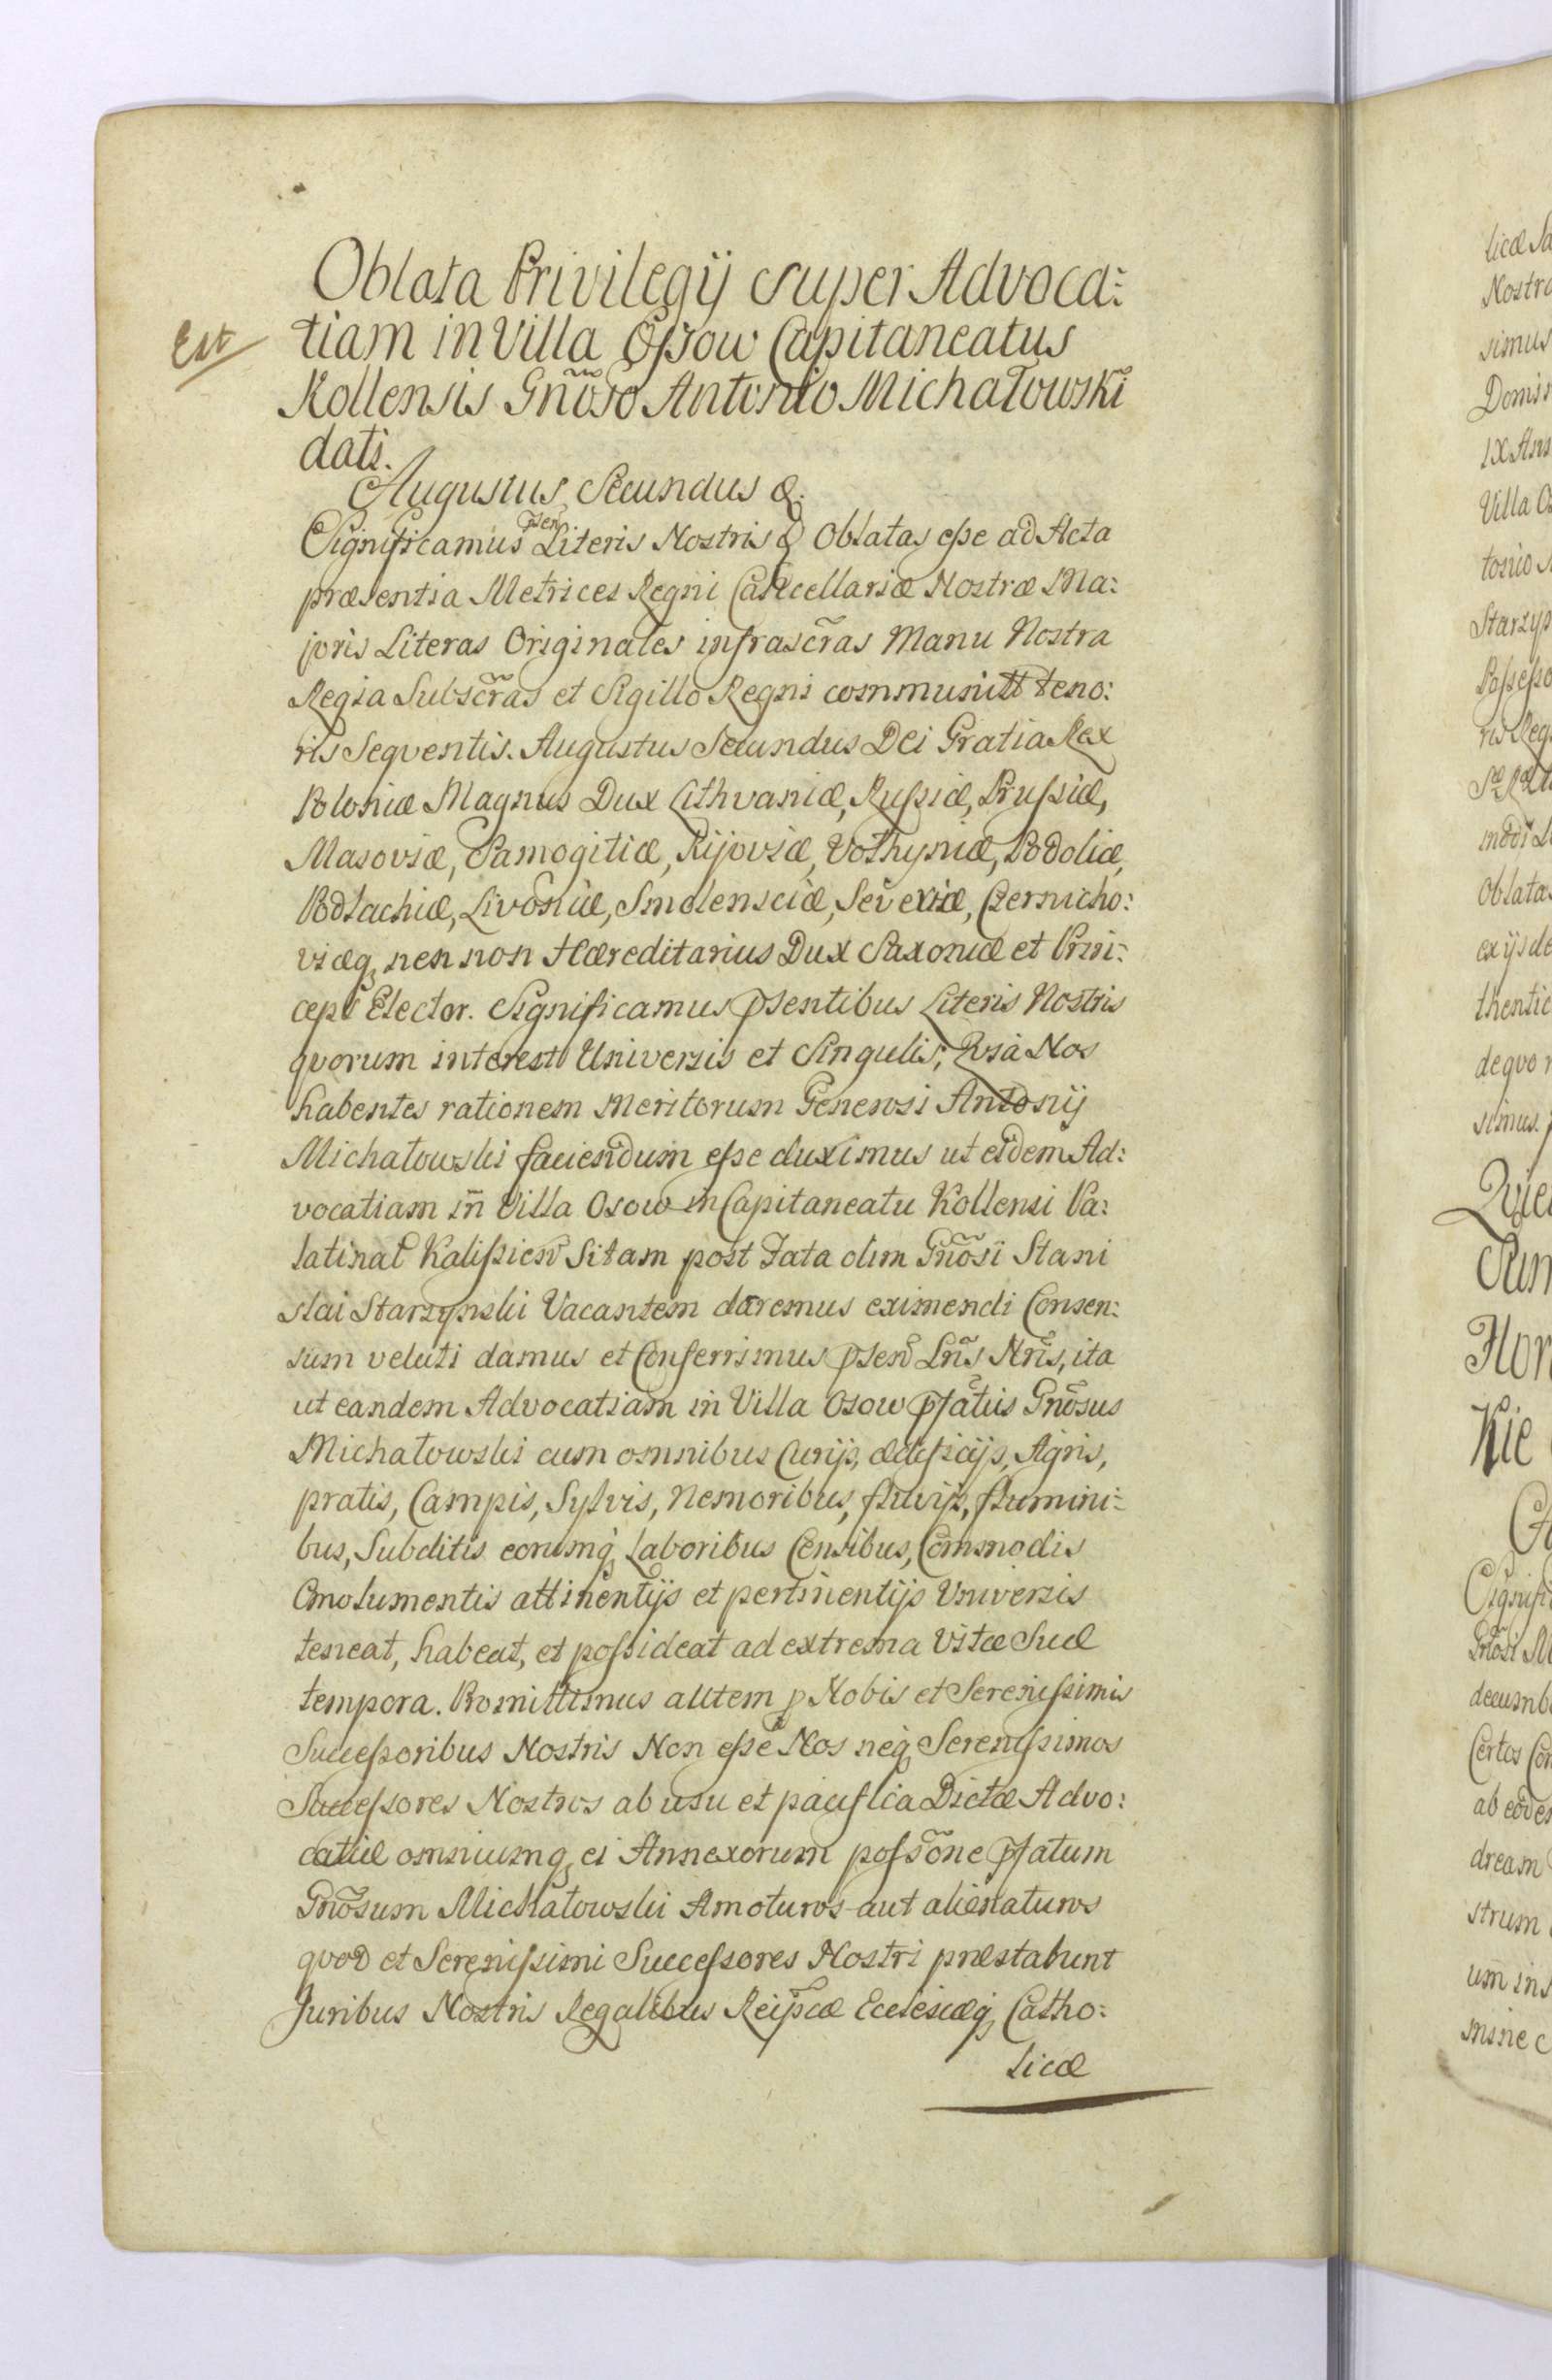 Oblata Privilegij super Advoca:
Est
tiam in Villa Oßow Capitaneatus
Kollensis Gñoso Antonio Michałowski
dati.
Augustus Secundus &.
Significamus p̃sen Literis Nostris & Oblatas eſse ad Acta
præsentia Metrices Regni Cancellariæ Nostræ Ma:
joris Literas Originales infrascr̃as Manu Nostra
Regia Subscr̃as et Sigillo Regni communitt teno:
ris Seqventis. Augustus Secundus Dei Gratia Rex
Poloniæ Magnus Dux Lithvaniæ, Ruſsiæ, Pruſsiæ,
Masoviæ, Samogitiæ, Kijoviæ, Vołhyniæ, Podoliæ,
Podlachiæ, Livoniæ, Smolensciæ, Severiæ, Czernicho:
viæq, nen non Hæreditarius Dux Saxoniæ et Prin:
ceps Elector. Significamus p̃sentibus Literis Nostris
qvorum interest Universis et Singulis, Qvia Nos
habentes rationem Meritorum Generosi Antonij
Michałowski faciendum eſse duximus ut eidem Ad:
vocatiam in Villa Osow in Capitaneatu Kollensi Pa:
latinat Kaliſsien Sitam post Fata olim Gñosi Stani
slai Starzynski Vacantem daremus eximendi Consen:
sum veluti damus et Conferrimus p̃sen Lr̃is Nr̃is, ita
ut eandem Advocatiam in Villa Osow p̃fatus Gñosus
Michałowski cum omnibus Curijs, ædificijs, Agris,
pratis, Campis, Sylvis, Nemoribus, fluvijs, flumini:
bus, Subditis eorumq, Laboribus Censibus, Commodis
Emolumentis attinentijs et pertinentijs Universis
teneat, habeat, et poſsideat ad extrema Vitæ Suæ
tempora. Promittimus autem p Nobis et Sereniſsimis
Succeſsoribus Nostris Non eſse Nos neq, Sereniſsimos
Succeſsores Nostros ab usu et pacifica Dictæ Advo:
catiæ omniumq, ei Annexorum poſsõne p̃fatum
Gñosum Michałowski Amoturos aut alienaturos
qvod et Sereniſsimi Succeſsores Nostri præstabunt
Juribus Nostris Regalibus Reip̃cæ Ecclesiæq, Catho:
licæ